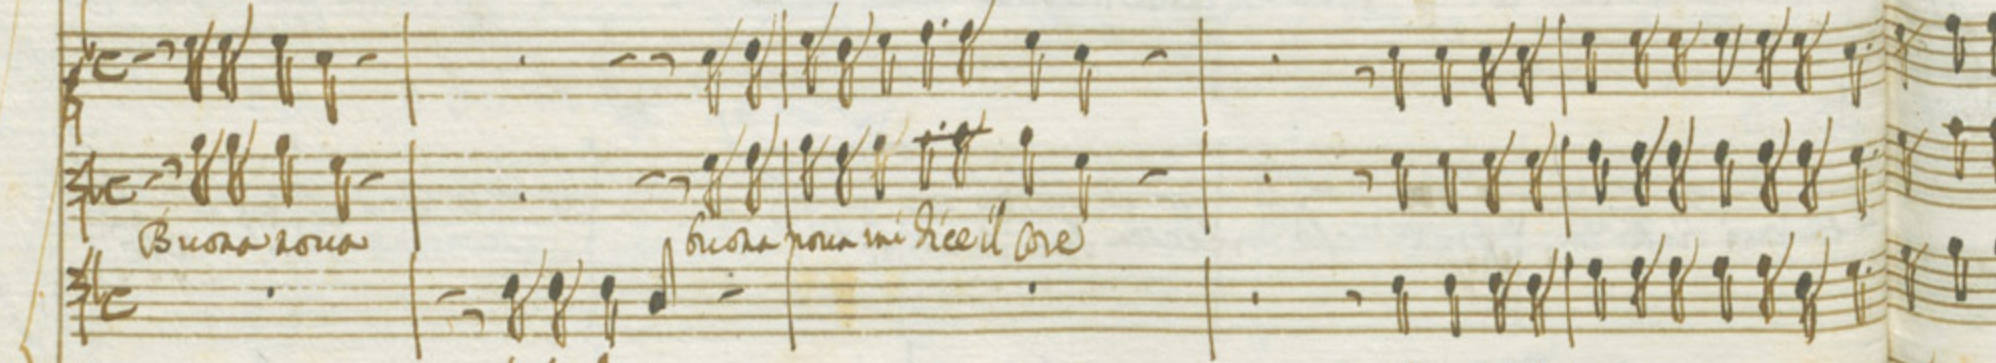 Buona noua buona noua mi dice il core